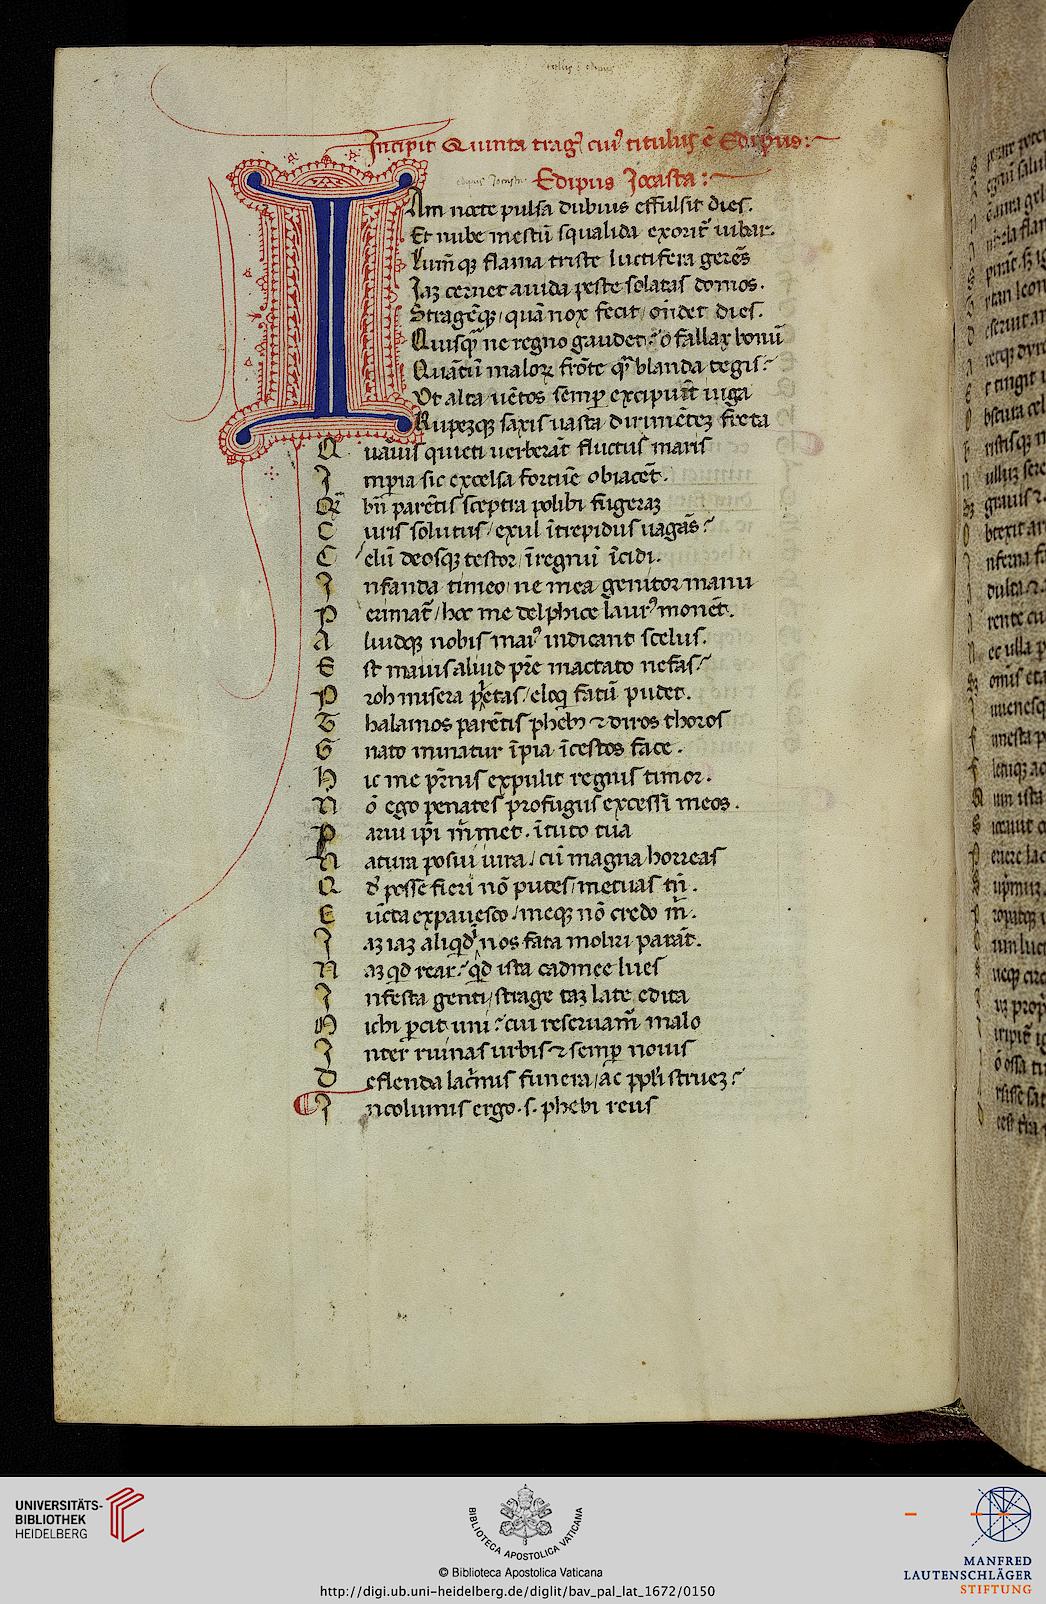 Incipit Quinta trag᾽ cui᾽ titulus ē Edipus:
Edipus Jocasta:
IAm nocte pulsa dubius effulsit dies.
Et nube mestū squalida exorit᷑ iubar.
Lumīqꝫ flama triste luctifera gerēs
Jaꝫ cernet auida peste solatas domos.
Stragēqꝫ / quā nox fecit / ondet dies.
Quisqᷓ ne regno gaudet: o fallax bonū
Quātū maloꝝ frōte qᷓ blanda tegis:
Ut alta uētos semꝑ excipiūt iuga
Rupeꝫqꝫ saxis uasta dirimēteꝫ freta
Quāuis quieti uerberāt fluctus maris
Imperia sic excelsa fortūe obiacēt.
Qᷓ bn̄ parētis sceptra polibi fugeraꝫ
Curis solutus / exul ītrepidus uagās:
Celū deosqꝫ testor / ī regnū īcidi.
Infanda timeo / ne mea genitor manu
Perimat᷑ / hoc me delphice laur᾽ monēt.
Aliudqꝫ nobis mai᾽ indicant scelus.
Est maius aliud pr̄e mactato nefas:
Proh misera pietas / eloq fatū pudet.
Thalamos parētis phebꝰ ⁊ diros thoros
Gnato minatur īpia īcestos face.
Hic me pr̄nis expulit regnis timor.
Nō ego penates profugus excessi meos.
Parū ip̄i m̄met. ī tuto tua
Natura posui iura / cū magna horreas
Qd̓ posse fieri nō putes / metuas tn̄.
Eūcta expauesco / meqꝫ nō credo m̄.
Jaꝫ iaꝫ aliqd̓ ī nos fata moliri parāt.
Naꝫ qd rear: qd̓ ista cadmee lues
Infesta genti / strage taꝫ late edita
Michi ꝑcit uni: cui reseruam᷑ malo
Inter ruinas urbis ⁊ semꝑ nouis
Deflenda lacrīmis funera / ac ppl̓i strueꝫ:
Incolumis ergo. s. phebi reus
UNIVERSITÄTS-
BIBLIOTHEK
HEIDELBERG
BIBLIOTECA APOSTOLICA VATICANA
© Biblioteca Apostolica Vaticana
http://digi.ub.uni-heidelberg.de/diglit/bav_pal_lat_1672/0150
MANFRED
LAUTENSCHLÄGER
STIFTUNG